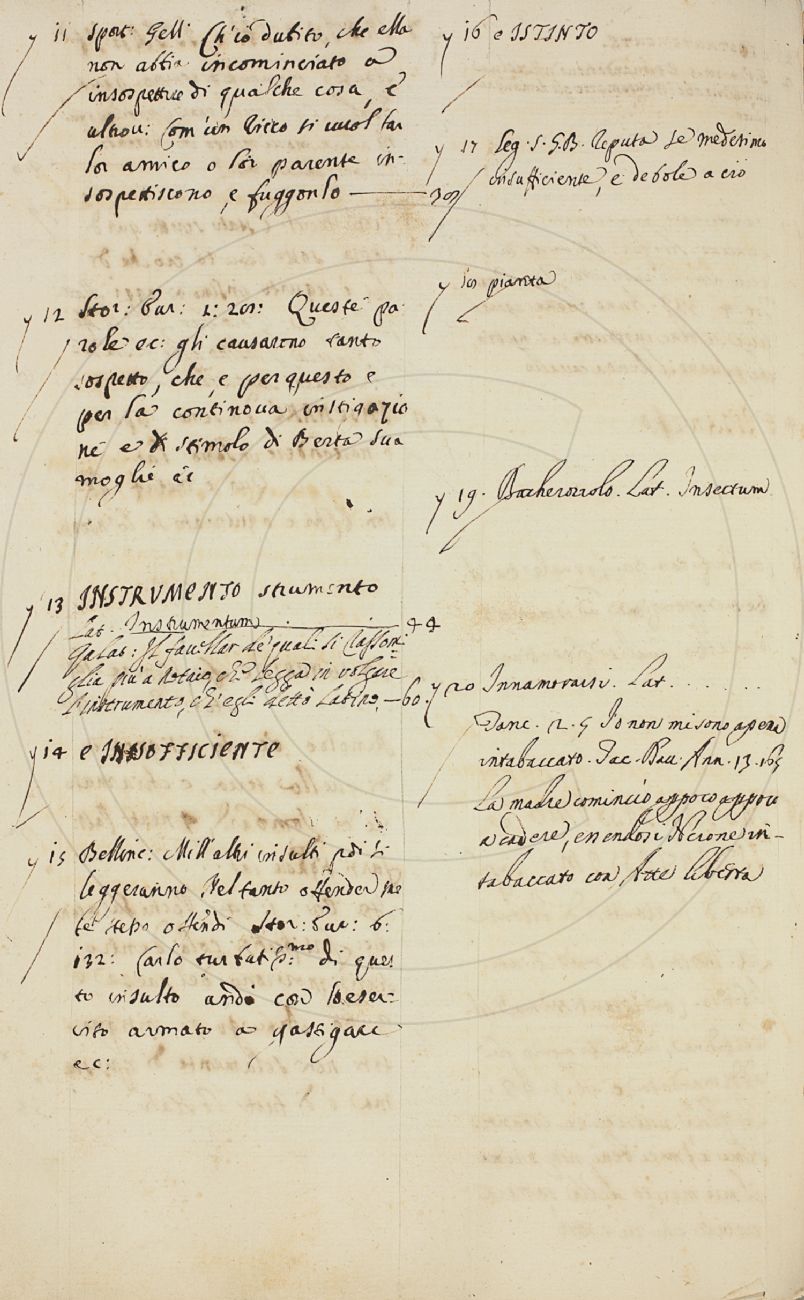 y 11 Sport: Gell: Ch'io dubito, che ella
non abbia incominciato a
insospettire di qualche cosa, e
altrou: Com'un Ricco si vuol far
lor amico o lor parente in-
sospettiscono, e fuggonlo — 30
y 12 Stor: Eur: 1: 20: Queste pa
role ec: gli causarono tanto
sospetto, che, e per questo e
per la continova instigazio
ne e di stimolo di Berta sua
moglie ec
y 13 INSTRUMENTO strumento
Lat. Instrumentum — 44
Galat: Il favellar de' quali si rassomi
glia più a Notaio, che legga in volgare
l'instrumento, ch'egli dettò Latino, — 60.
y 14 e INSOFFICIENTE
y 15 Bellinc: Mill'altri insulti poi si
leggeranno Nel tanto offender me
te stesso offendi Stor: Eur: 6:
132: Carlo turbatiss:mo di ques
to insulto andò con lo eser-
cito armato a gastigare
ec:
y 16 e ISTINTO
y 17 Seg. S. G. B. Reputa se medesimo
insufficiente, e debole a ciò
y 18 pianta
y 19. Bacherozzolo. Lat. Insectum
y 20 Innamorarsi. Lat. . . . . . .
Danc. 2. 5 Io non mi sono apena
intabaccato. Tac. Dav. Ann. 13. 165
La madre cominciò appoco appoco
a cadere, essendosi Nerone in-
tabaccato con Atte liberta